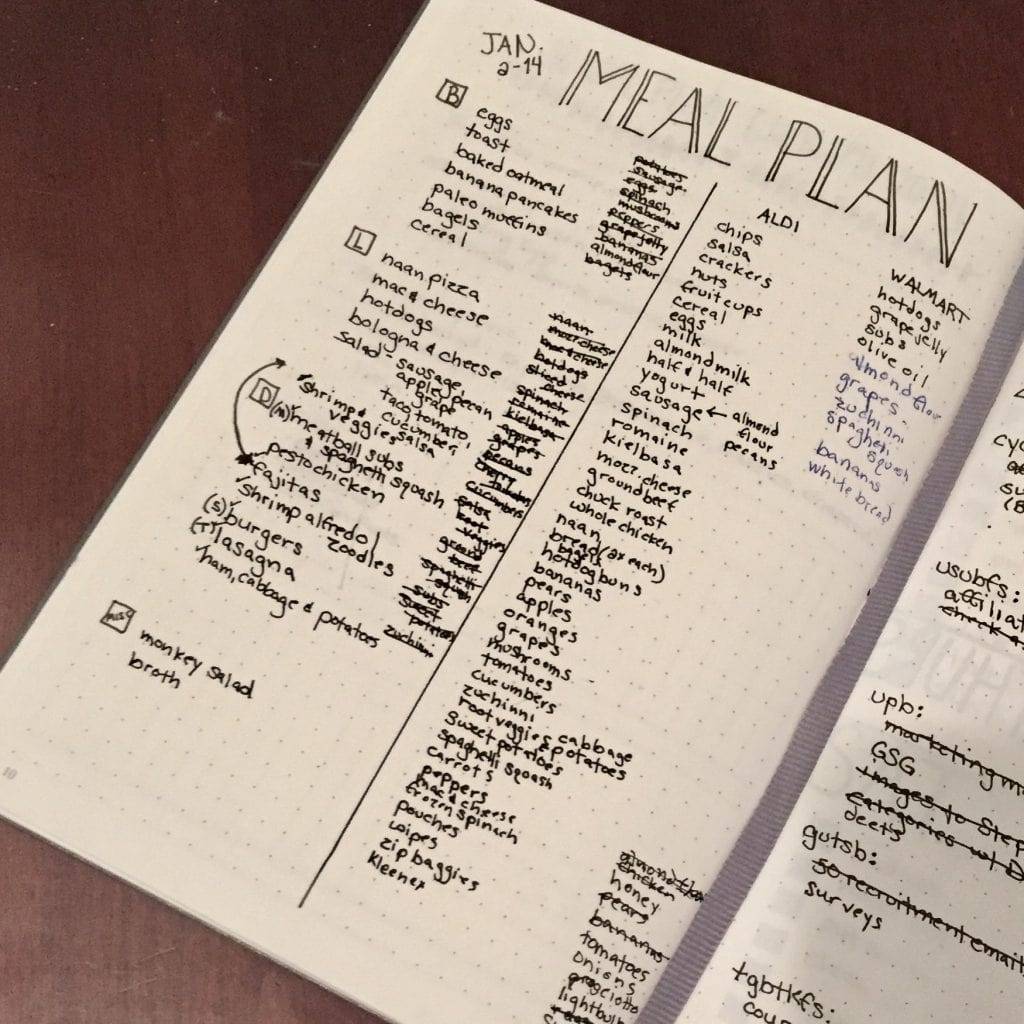 JAN.
2-14
MEAL PLAN
B
eggs
toast
baked oatmeal
banana pancakes
paleo muffins
bagels
cereal
potatoes
sausage
eggs
spinach
mushrooms
peppers
grape jelly
bananas
almond flour
bagels
L
naan pizza
mac & cheese
hotdogs
bologna & cheese
salad - sausage,
apple, pecan
grape
taco, tomato,
cucumber,
salsa
naan
mozz cheese
mac & cheese
hotdogs
sliced
cheese
spinach
romaine
kielbasa
apples
grapes
pecans
cherry
tomatoes
cucumbers
salsa
root
veggies
ground
beef
spaghetti
squash
subs
sweet
potatoes
zuchinni
D
shrimp &
veggies
(M) meatball subs
& spaghetti squash
pesto chicken
fajitas
shrimp alfredo/
zoodles
(S) burgers
(T) lasagna
ham, cabbage & potatoes
misc
monkey salad
broth
10
ALDI
chips
salsa
crackers
nuts
fruit cups
cereal
eggs
milk
almond milk
half & half
yogurt
sausage ← almond
flour
pecans
spinach
romaine
kielbasa
mozz. cheese
ground beef
chuck roast
whole chicken
naan
bread (2x each)
bagels
hotdog buns
bananas
pears
apples
oranges
grapes
mushrooms
tomatoes
cucumbers
zuchinni
root veggies, cabbage
& potatoes
sweet potatoes
spaghetti squash
carrots
peppers
mac & cheese
frozen spinach
pouches
wipes
zip baggies
kleenex
WALMART
hotdogs
grape jelly
subs
olive oil
almond flour
grapes
zuchinni
spagheti
squash
bananas
white bread
almond flour
chicken
honey
pears
bananas
tomatoes
onions
lightbulb
cyc
usubfs:
affiliat
check a
upb:
marketing m
GSG
images to Step
categories w/ D
deets
gutsb:
50 recruitment email
surveys
tgbtkfs:
cou